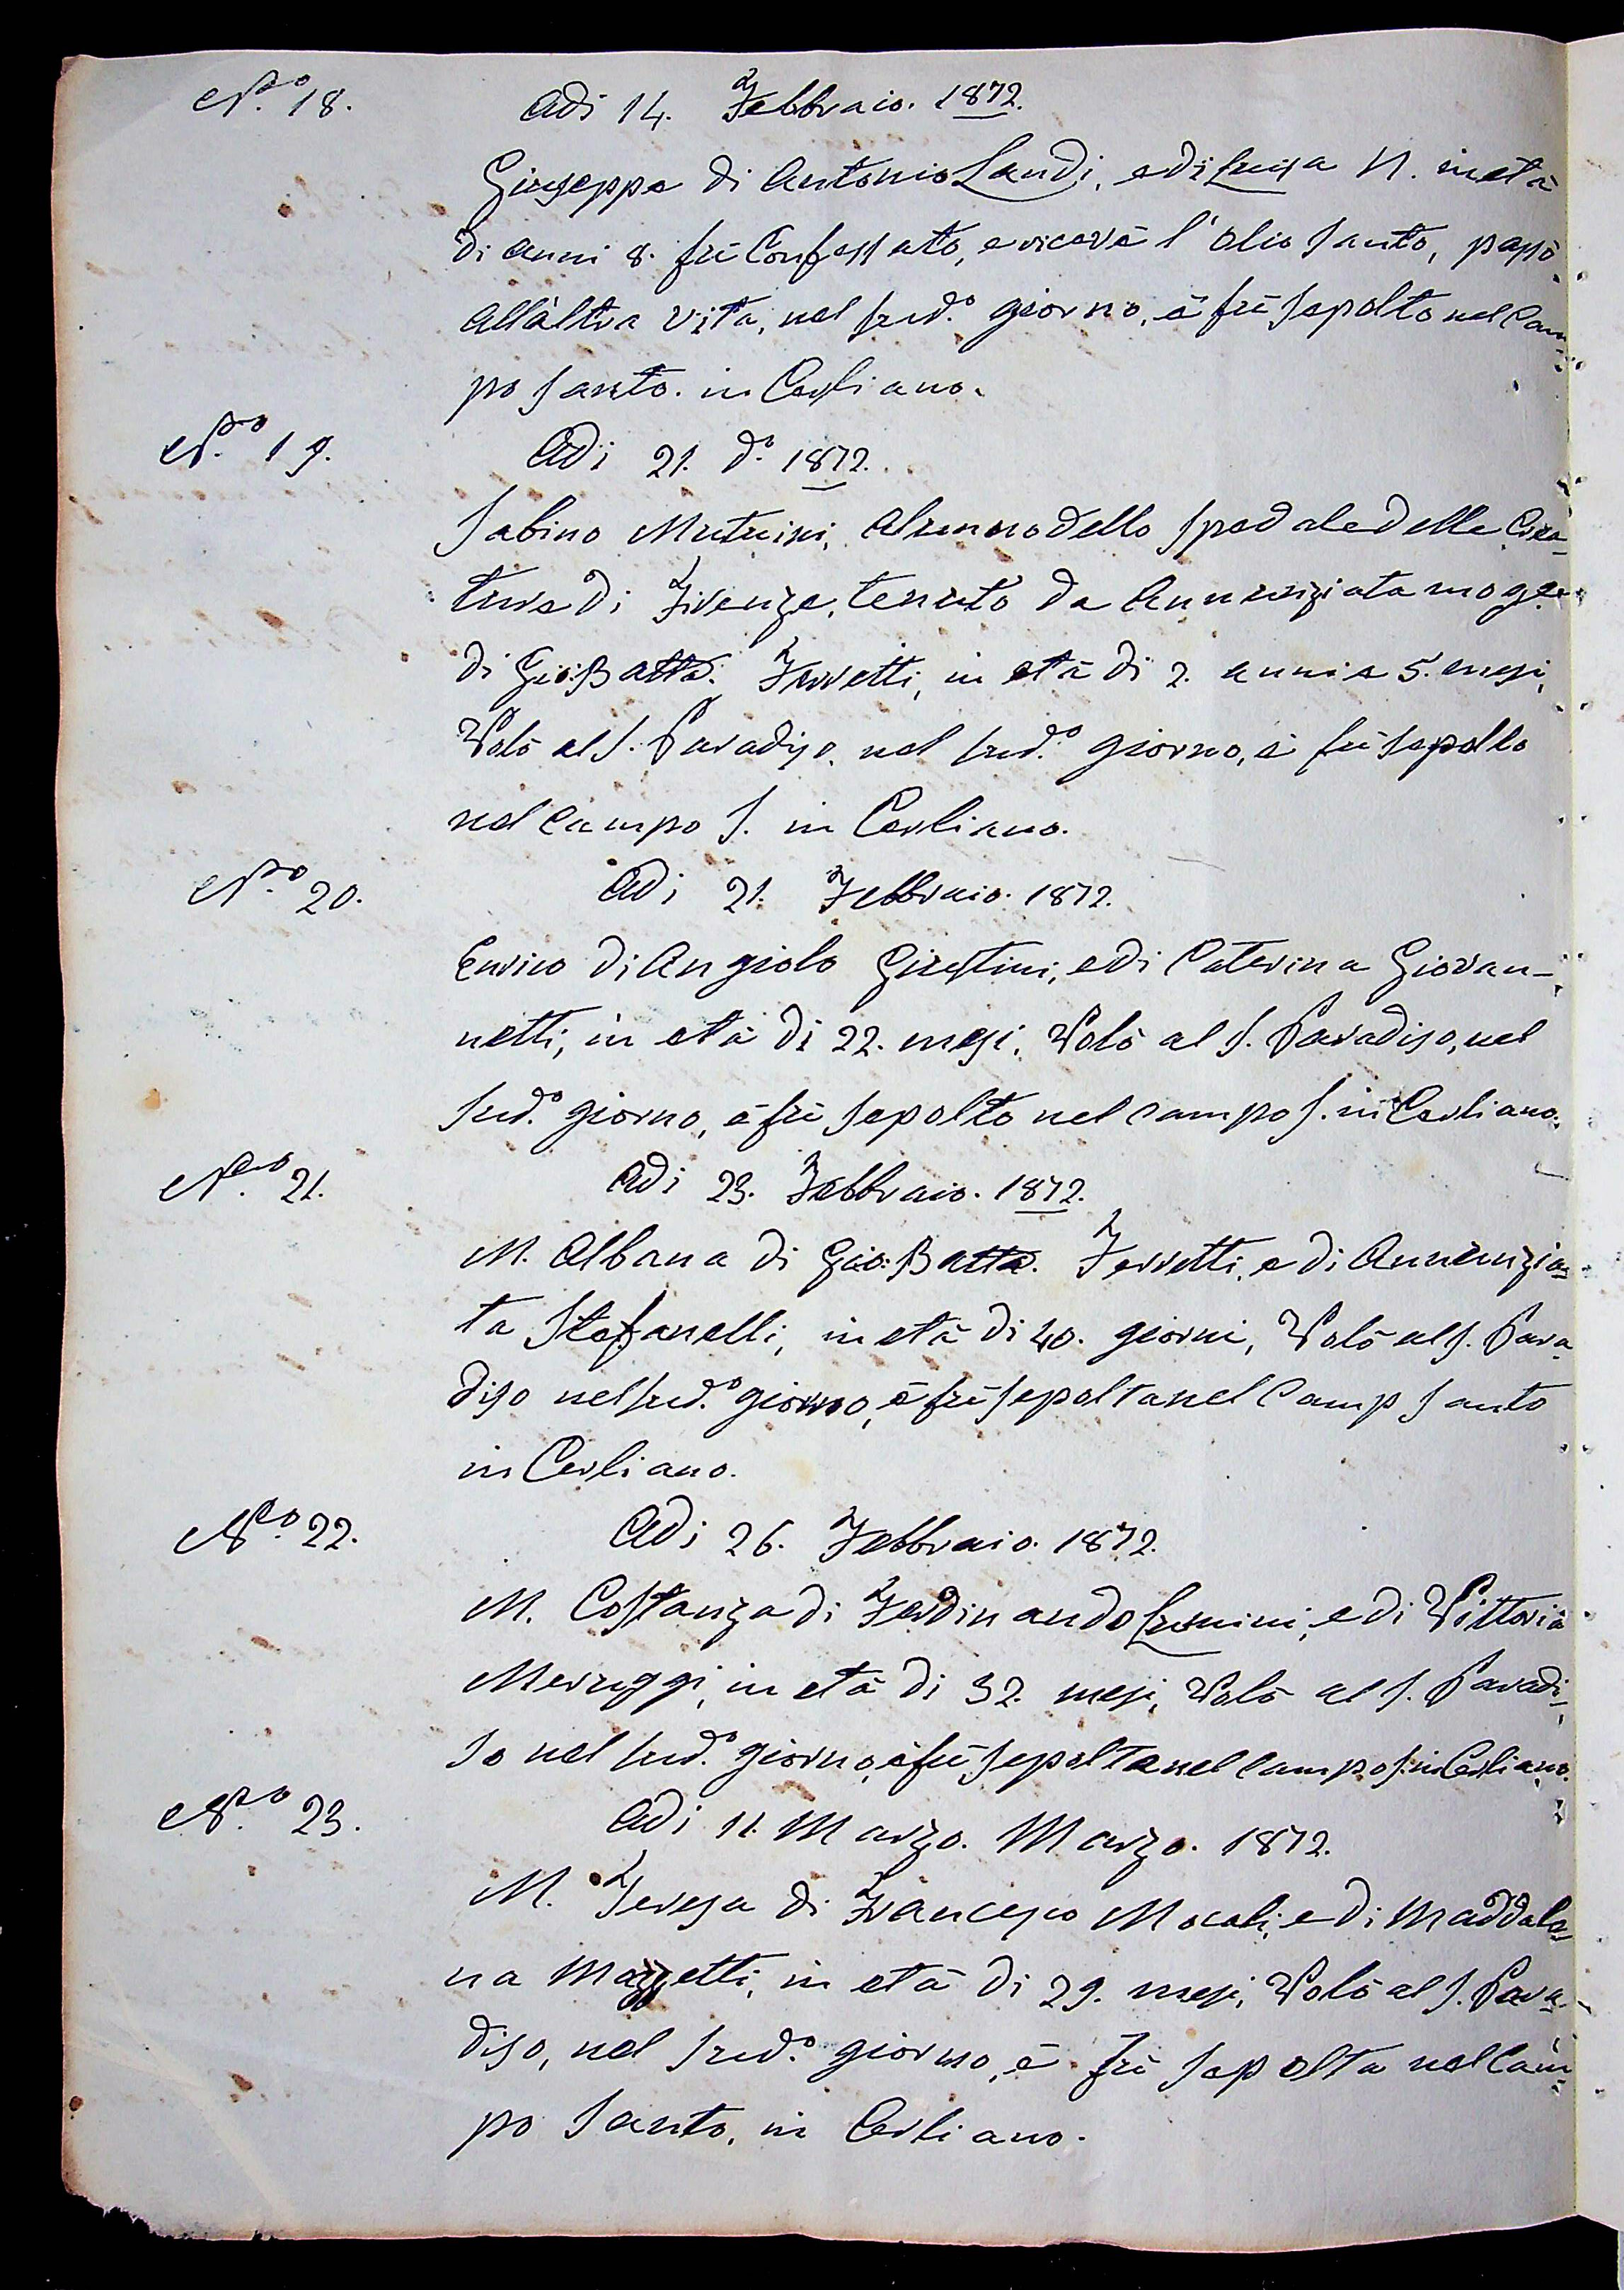 N.ro 18.
Adi 14. Febbraio. 1872.
Giuseppe di Antonio Landi, e di Luisa N. in età
di anni 8. fù Confessato, e ricevè l'Olio Santo, passò
all'altra Vita, nel sud.o giorno, è fù sepolto nel Cam=
po Santo. in Cerliano.
N.ro 19.
Adi 21. d.o 1872.
Sabino Mutuini, Alunno dello Spedale delle Crea=
ture di Firenze, tenuto da Annunziata moge
di Gio: Batta. Ferretti, in età di 2. anni e 5. mesi,
Volò al S. Paradiso, nel sud.o giorno, è fù sepolto
nel Campo S. in Cerliano.
N.ro 20.
Adi 21. Febbraio. 1872.
Enrico di Angiolo Giustini, e di Caterina Giovan=
netti, in età di 22. mesi, Volò al S. Paradiso, nel
sud.o giorno, è fù sepolto nel campo S. in Cerliano.
N.ro 21.
Adi 23. Febbraio. 1872.
M. Albana di Gio: Batta. Ferretti, e di Annunzia=
ta Stefanelli, in età di 40. giorni, Volò al S. Para=
diso nel sud.o giorno, è fù sepolta nel Camp Santo
in Cerliano.
N.ro 22.
Adi 26. Febbraio. 1872.
M. Costanza di Ferdinando Lumini, e di Vittoria
Meruggi, in età di 32. mesi, Volò al S. Paradi=
so nel sud.o giorno, è fù sepolta nel Campo S. in Cerliano.
N.ro 23.
Adi 11. Marzo. Marzo. 1872.
M. Teresa di Francesco Mocali, e di Maddale=
na Mazzetti, in età di 29. mesi, Volò al S. Para=
diso, nel sud.o giorno, è fù sepolta nel Cam=
po Santo, in Cerliano.